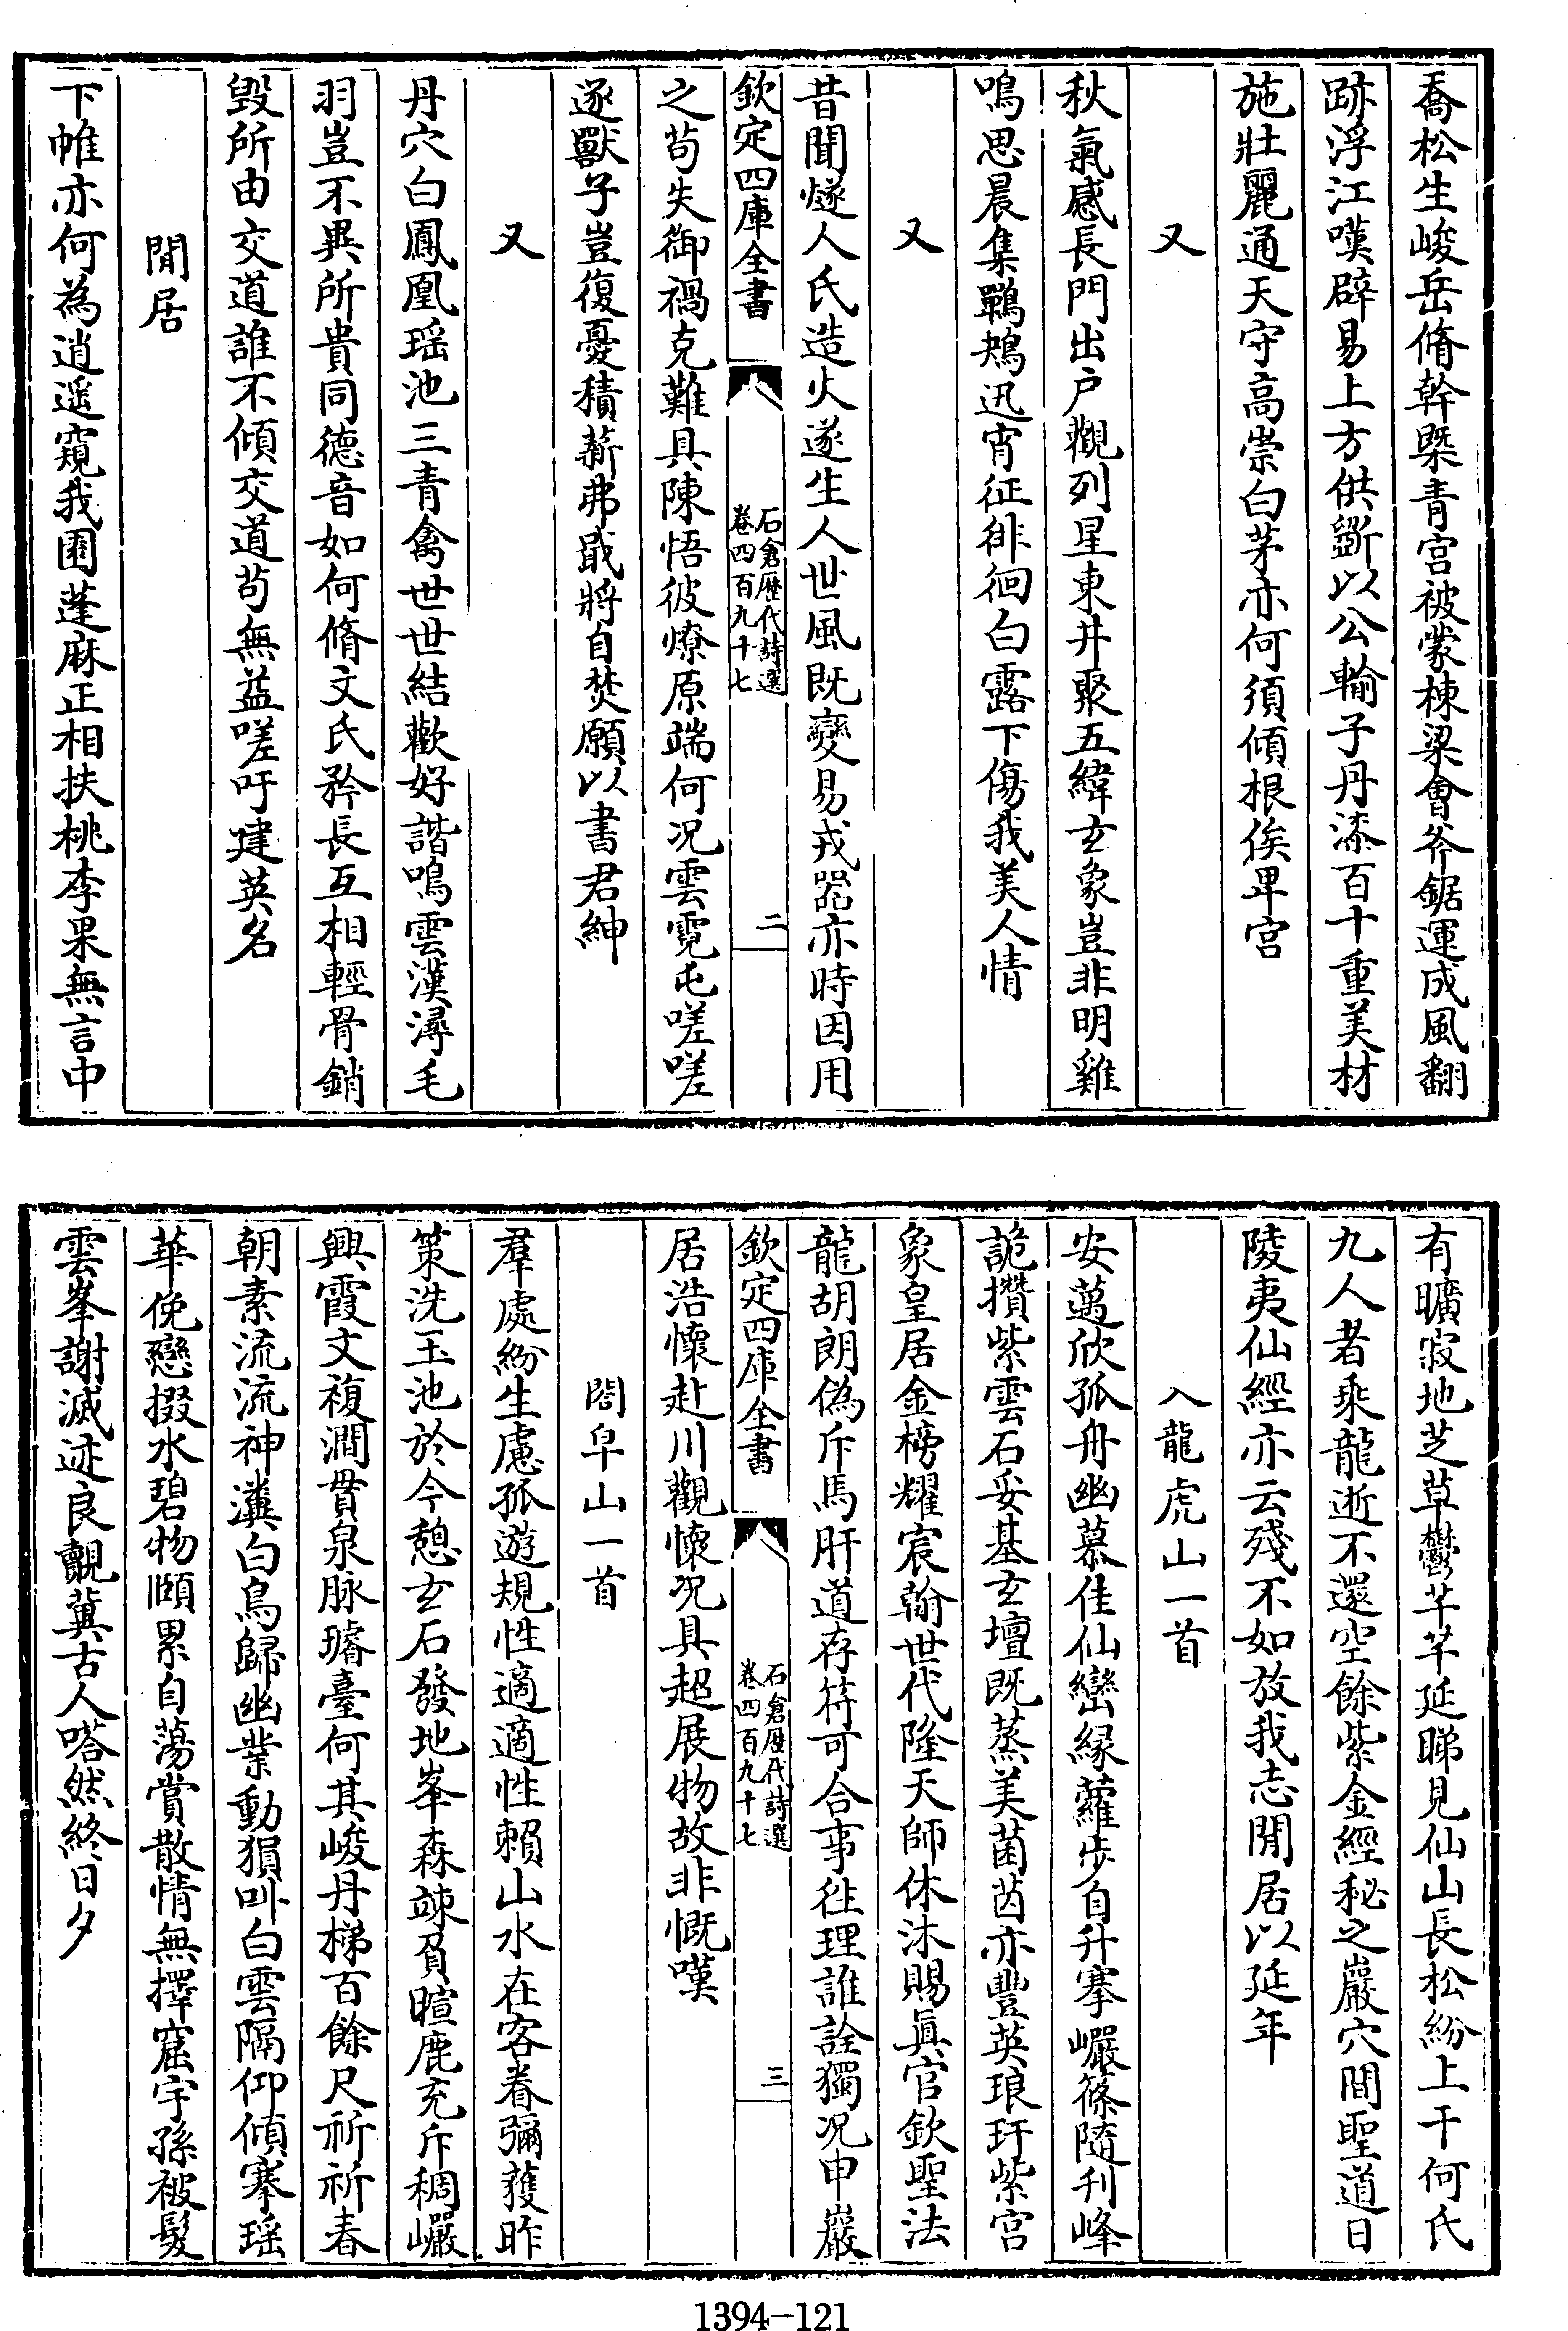 喬松生峻岳脩幹槩青宫被蒙棟梁會斧鋸運成風翻
跡浮江嘆辟易上方供斵以公輸子丹漆百十重美材
施壯麗通天守高崇白茅亦何須傾根俟卑宫
又
秋氣感長門出户觀列星東井聚五緯玄象豈非明雞
鳴思晨集鸎鴂迅宵征徘徊白露下傷我美人情
又
昔聞燧人氏造火遂生人世風既變易戎器亦時因用
欽定四庫全書
石倉歴代詩選
卷四百九十七
二
之苟失御禍克難具陳悟彼燎原端何况雲霓屯嗟嗟
逐獸子豈復憂積薪弗戢將自焚願以書君紳
又
丹穴白鳳凰瑶池三青禽世世結歡好諧鳴雲漢潯毛
羽豈不異所貴同德音如何脩文氏矜長互相輕骨銷
毁所由交道誰不傾交道苟無益嗟吁建英名
閒居
下帷亦何為逍遥窺我園蓬麻正相扶桃李果無言中
有曠寂地芝草鬱芊芊延睇見仙山長松紛上干何氏
九人者乘龍逝不還空餘紫金經秘之巖穴間聖道日
陵夷仙經亦云殘不如放我志閒居以延年
入龍虎山一首
安邁欣孤舟幽慕佳仙巒縁蘿步自升搴巘篠隨刋峰
詭攢紫雲石妥基玄壇既蒸美菌茵亦豐英琅玕紫宫
象皇居金榜耀宸翰世代隆天師休沐賜眞官欽聖法
龍胡朗偽斥馬肝道存符可合事徃理誰詮獨况申巖
欽定四庫全書
石倉歴代詩選
卷四百九十七
三
居浩懷赴川觀懷况具超展物故非慨嘆
閤皁山一首
羣處紛生慮孤遊規性適適性賴山水在客眷彌獲昨
策洗玉池於今憩玄石發地峯森竦負暄鹿充斥稠巘
興霞文複澗貫泉脉璿臺何其峻丹梯百餘尺祈祈春
朝素流流神瀵白鳥歸幽業動猨叫白雲隔仰傾搴瑶
華俛戀掇水碧物頤累自蕩賞散情無擇窟宇孫被髮
雲峯謝滅迹良覿冀古人嗒然終日夕
1394-121